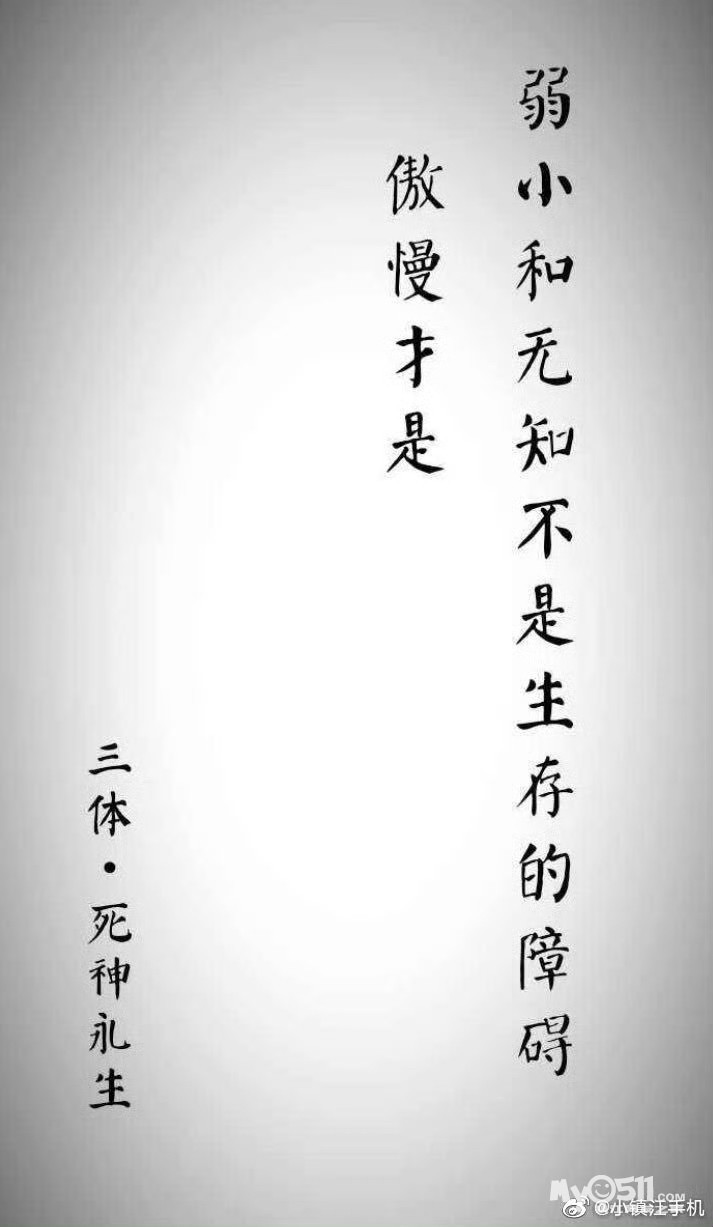 弱小和无知不是生存的障碍
傲慢才是
三体·死神永生
My0511.COM
@小镇汪手机